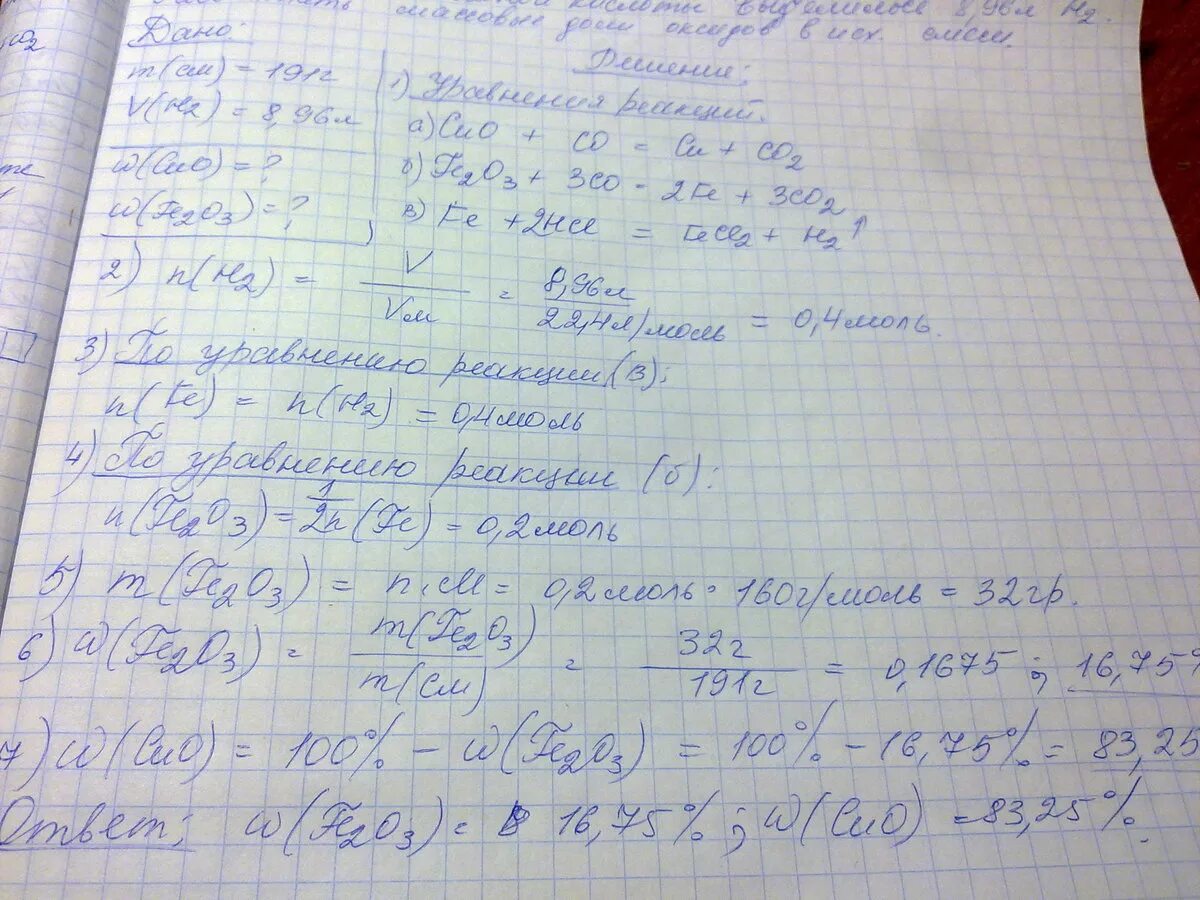 кислоты выделилось 8,96л H2.
массовые доли оксидов в исх. смеси.
Дано:
Решение:
m(см) = 191г
V(H2) = 8,96л
w(CuO) = ?
w(Fe2O3) = ?
1) Уравнения реакций.
а) CuO + CO = Cu + CO2
б) Fe2O3 + 3CO = 2Fe + 3CO2
в) Fe + 2HCl = FeCl2 + H2↑
2) n(H2) = V/Vм = 8,96л/22,4л/моль = 0,4моль.
3) По уравнению реакции (в):
n(Fe) = n(H2) = 0,4моль
4) По уравнению реакции (б):
n(Fe2O3) = 1/2n(Fe) = 0,2моль
5) m(Fe2O3) = n·M = 0,2моль · 160г/моль = 32гр.
6) w(Fe2O3) = m(Fe2O3)/m(см) = 32г/191г = 0,1675; 16,75%
7) w(CuO) = 100% - w(Fe2O3) = 100% - 16,75% = 83,25
Ответ: w(Fe2O3) = 16,75%; w(CuO) = 83,25%.